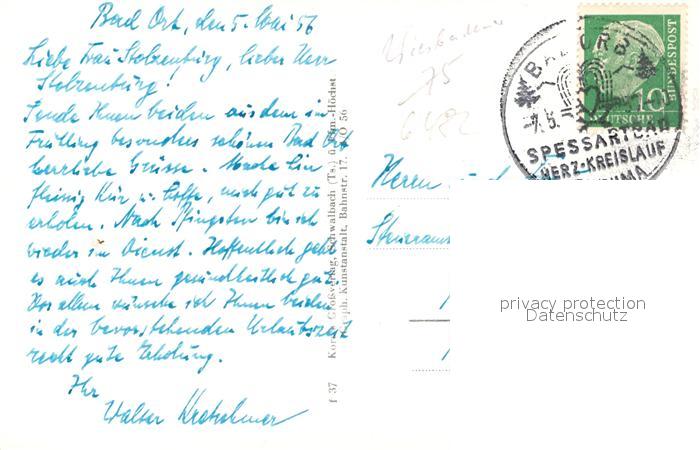 Bad Orb, den 5. Mai 56
Liebe Frau Stolzenburg, lieber Herr
Stolzenburg!
Sende Ihnen beiden aus dem im
Frühling besonders schönen Bad Orb
herrliche Grüsse. Mache hier
fleissig Kur u. hoffe, mich gut zu
erholen. Nach Pfingsten bin ich
wieder im Dienst. Hoffentlich geht
es auch Ihnen gesundheitlich gut.
Vor allem wünsche ich Ihnen beiden
in der bevorstehenden Urlaubszeit
recht gute Erholung.
Ihr
Walter Kretschmer
f 37
Schwalbach (Ts.)
Ffm.-Höchst
Kunstanstalt, Bahnstr. 17.
O 56
Wiesbaden
75
BAD ORB
-7.5.
SPESSARTBAD
HERZ-KREISLAUF
10
DEUTSCHE
BUNDESPOST
Herrn
privacy protection
Datenschutz